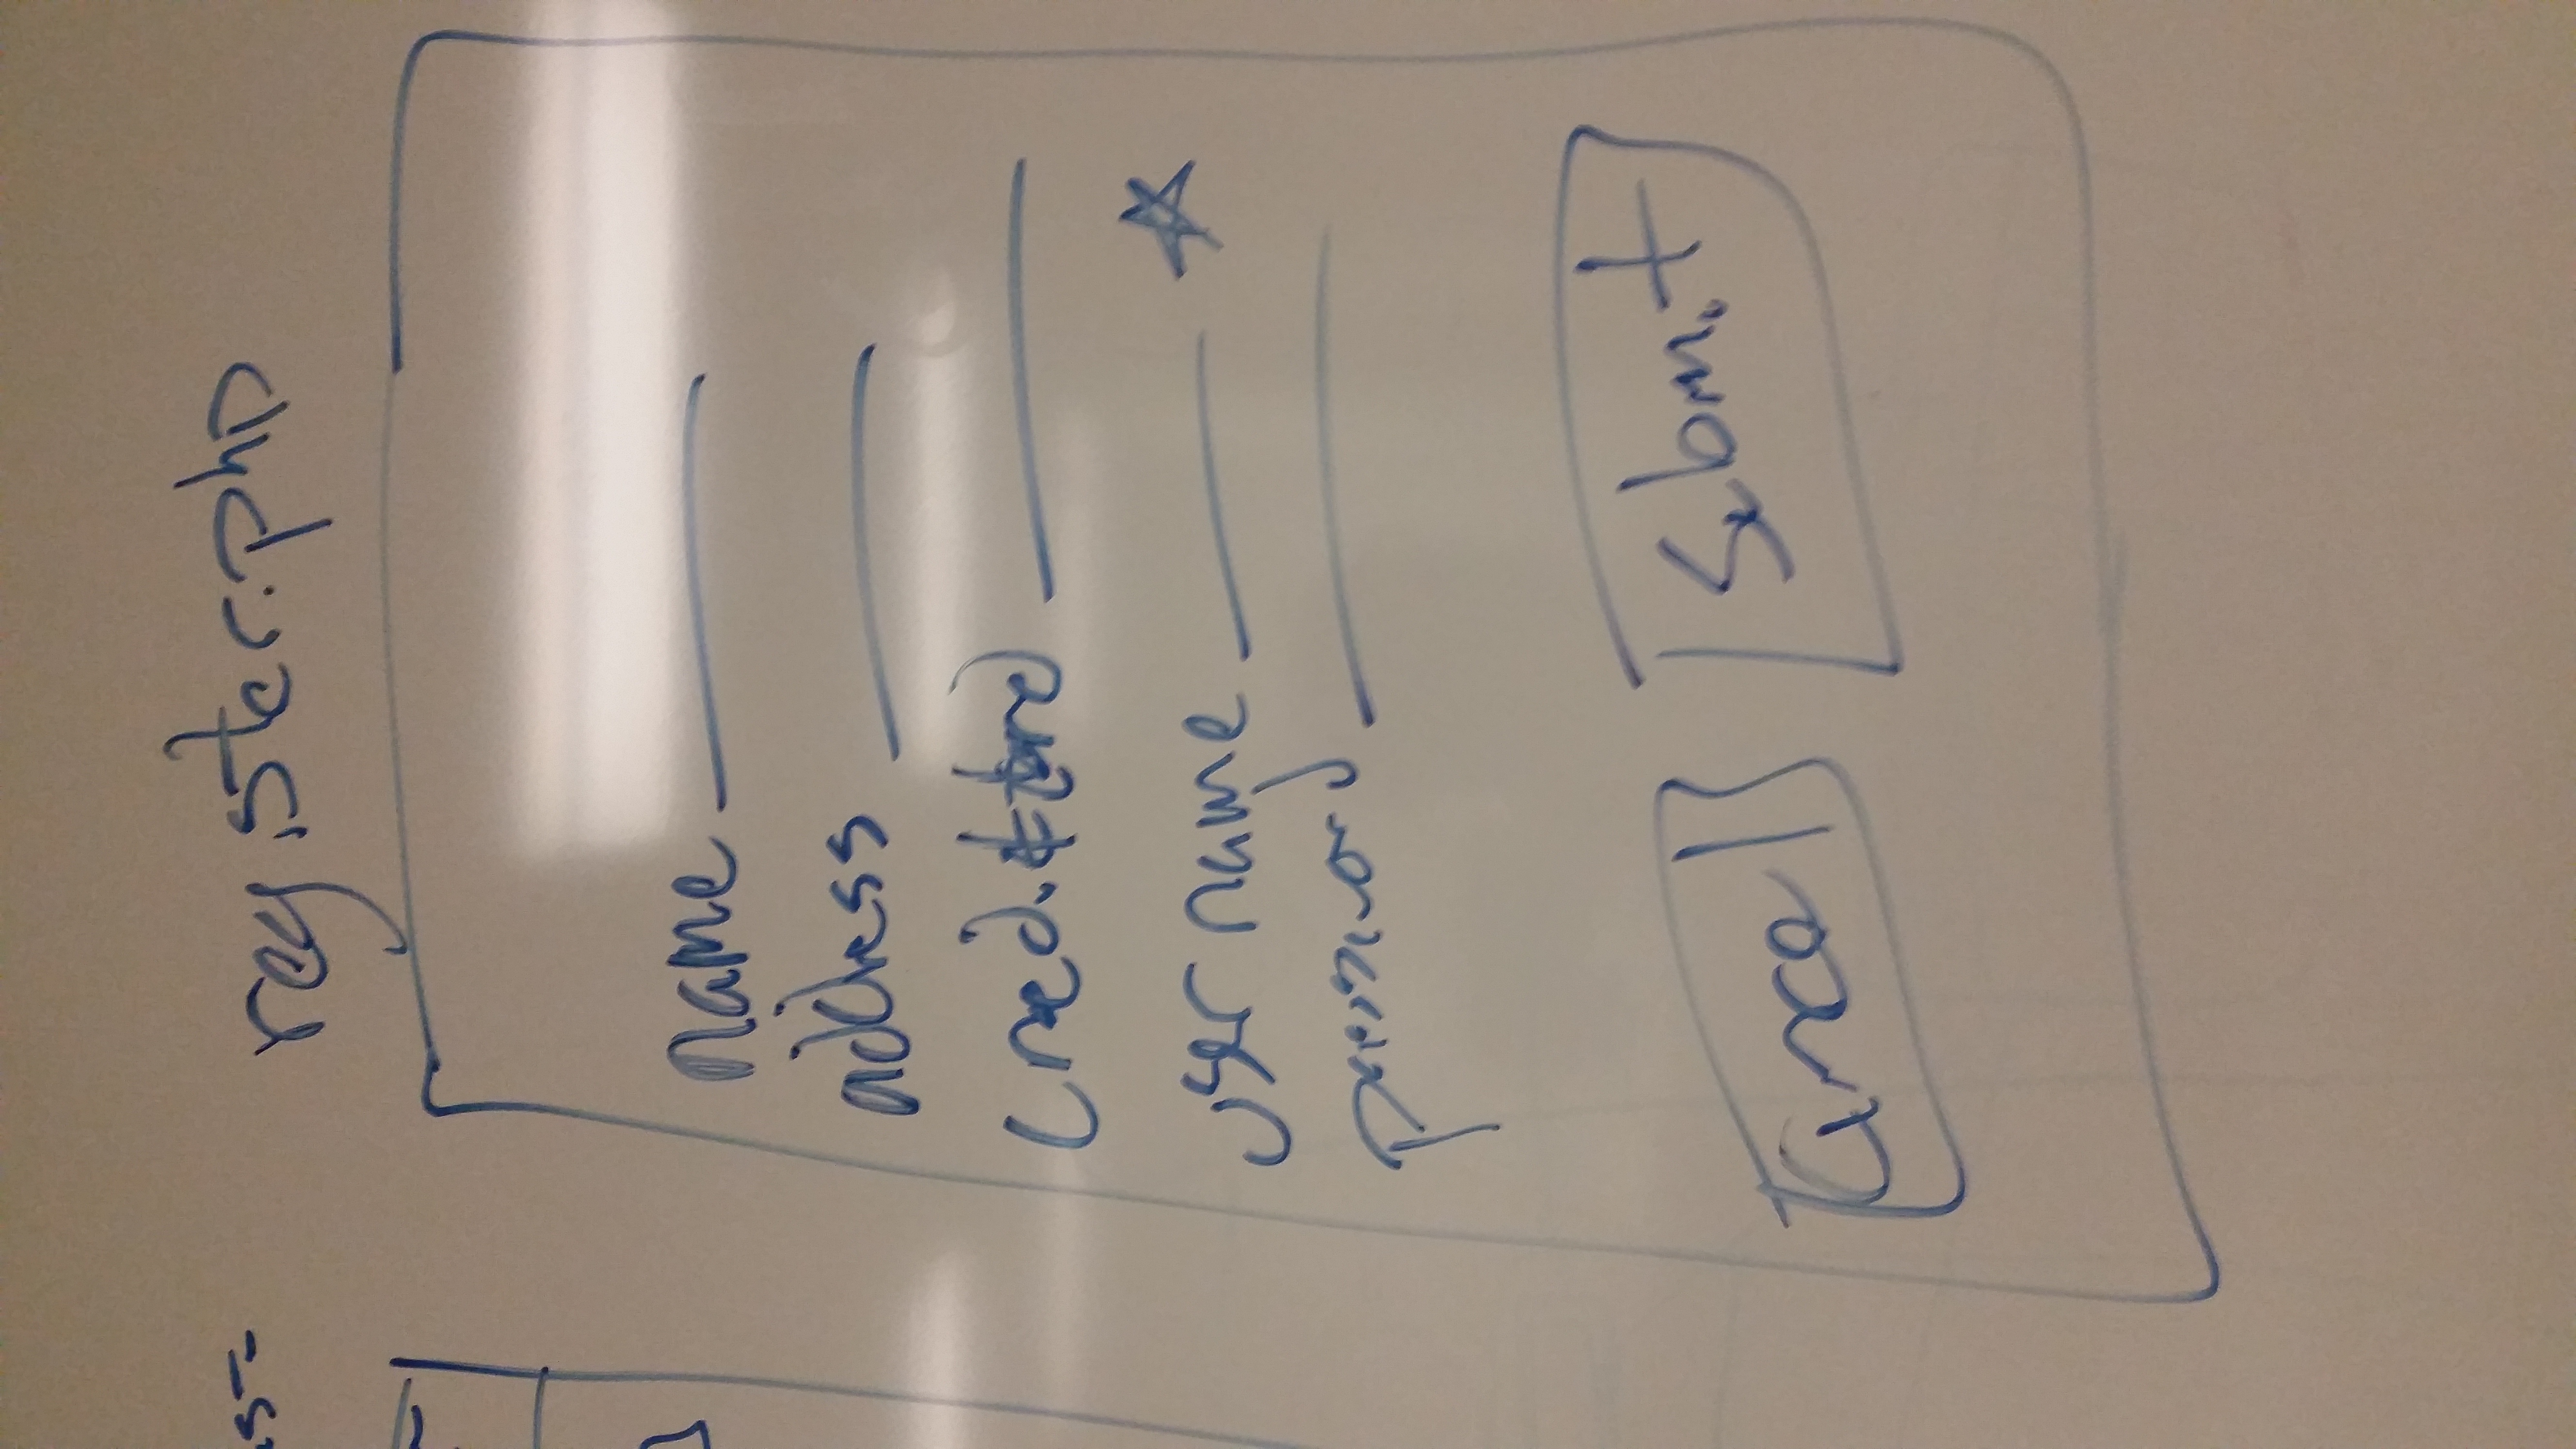 register.php
name
address
credit card
user name
password
cancel
submit